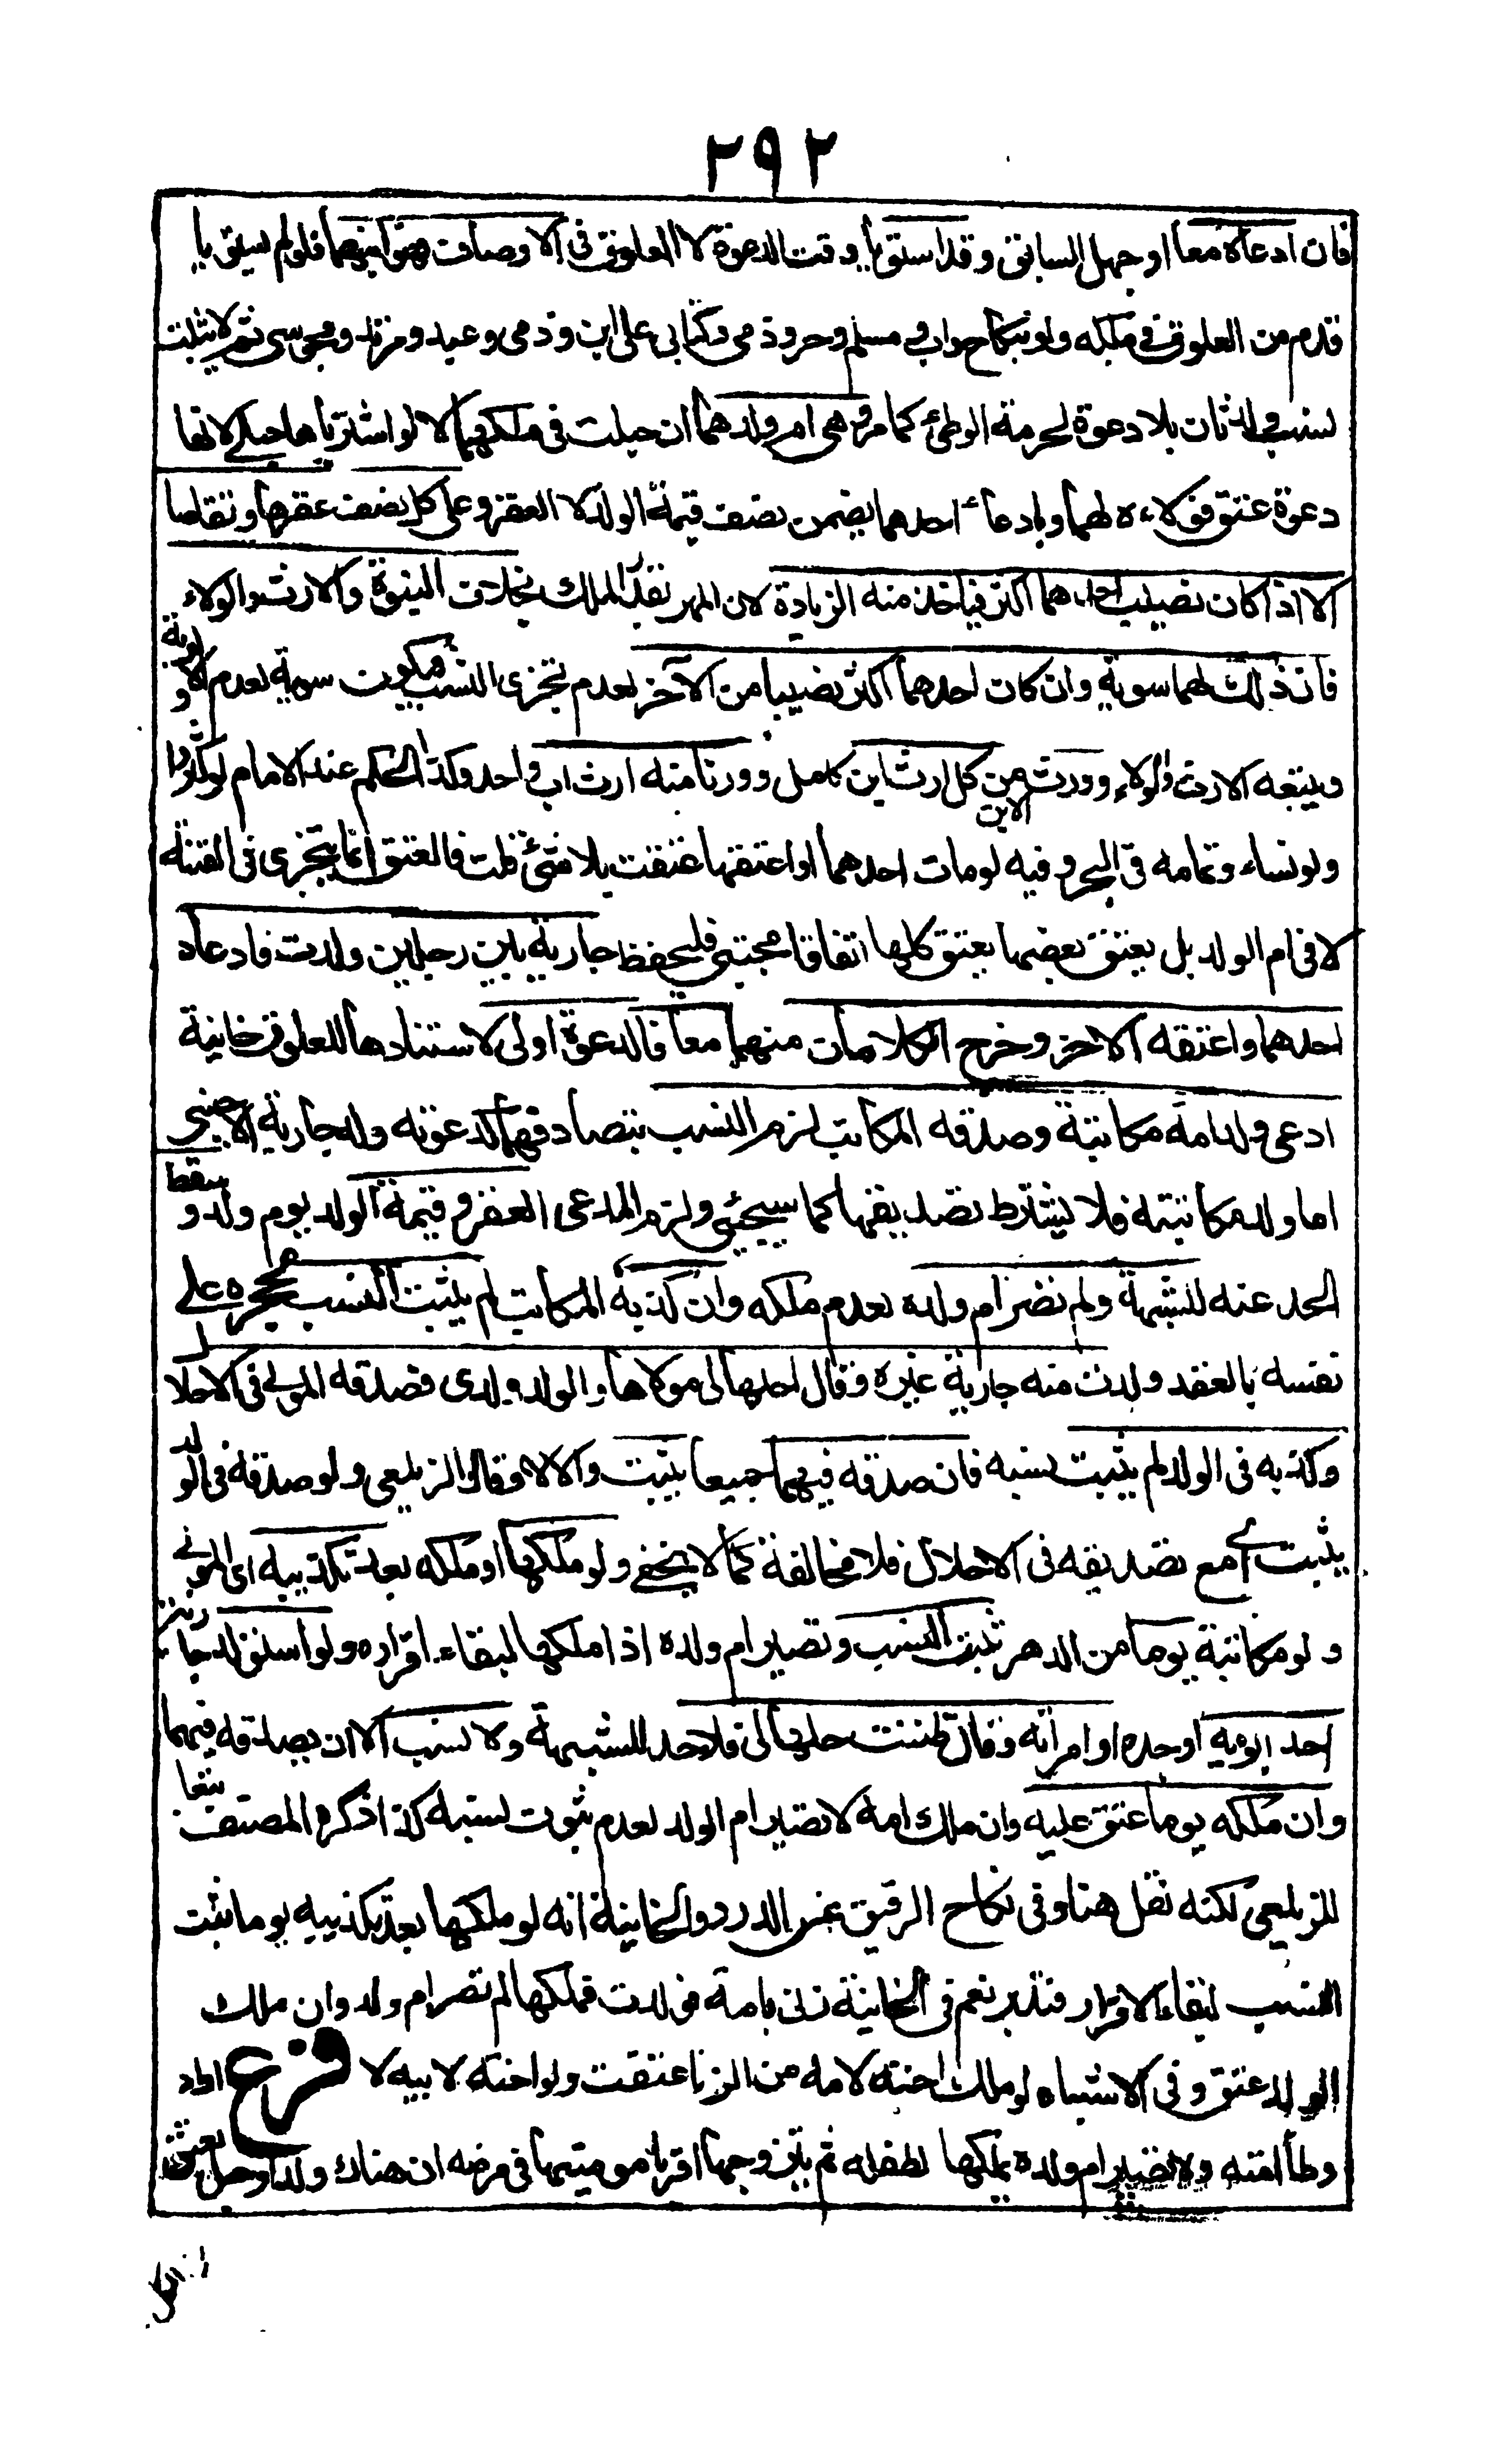 ٢٩٢
فان ادعاه معا او جهل السابق وقد استويا وقت الدعوة لا العلوق في الاوصاف فهو ابنهما فلو لم يستويا
قدم من العلوق في ملكه ولو بنكاح واب ومسلم وحر وذمي وكتابي على ابن وذمي وعبد ومرتد ومجوسي ثم لا يثبت
نسب ولد ثان بلا دعوة لحرمة الوطئ كما مر وهي ام ولدهما ان حبلت في ملكهما لا لو اشترياها حبلى لانها
دعوة عتق فولاءه لهما وبادعاء احدهما يضمن نصف قيمة الولد لا العقر وعلى كل نصف عقرها وتقاصا
الا اذا كان نصيب احدهما اكثر فياخذ منه الزيادة لان المهر بقدر الملك بخلاف البنوة والارث والولاء
فان ذلك لهما سوية وان كان احدهما اكثر نصيبا من الآخر لعدم تجزى النسب فيكون سوية لعدم الاولوية
ويتبعه الارث والولاء وورث الابن من كل ارث ابن كامل وورثا منه ارث اب واحد وكذا الحكم عند الامام لو كثروا
ولو نساء وتمامه في البحر وفيه لو مات احدهما او اعتقها عتقت بلا شئ قلت فالعتق انما يتجزى في القنة
لا في ام الولد بل يعتق بعضها يعتق كلها اتفاقا مجتبى فليحفظ جارية بين رجلين ولدت فادعاه
احدهما واعتقه الاخر وخرج الكلامان منهما معا فالدعوة اولى لاستنادها للعلوق خانية
ادعى ولد امة مكاتبة وصدقه المكاتب لزم النسب بتصادقهما كدعوته ولد جارية الاجنبي
اما ولد مكاتبته فلا يشترط تصديقها كما سيجئ ولزم المدعي العقر وقيمة الولد يوم ولد وسقط
الحد عنه للشبهة ولم تصر ام ولده لعدم ملكه وان كذبه المكاتب لم يثبت النسب لحجره على
نفسه بالعقد ولدت منه جارية غيره وقال احلها لي مولاها والولد ولدي فصدقه المولى في الاحلال
وكذبه في الولد لم يثبت نسبه فان صدقه فيهما جميعا يثبت والا لا وقال الزيلعي ولو صدقه في الولد
يثبت اي مع تصديقه في الاحلال فلا مخالفة كما لا يخفى ولو ملكها او ملكه بعد تكذيبه اي المولى
ولو مكاتبة يوما من الدهر ثبت النسب وتصير ام ولده اذا ملكها لبقاء اقراره ولو استولد جارية
احد ابويه او جده او امراته وقال ظننت حلها لي فلا حد للشبهة ولا نسب الا ان يصدقه فيهما
وان ملكه يوما عتق عليه وان ملك امه لا تصير ام الولد لعدم ثبوت نسبه كذا ذكره المصنف تبعا
للزيلعي لكنه نقل هنا وفي نكاح الرقيق عن الدرر والخانية انه لو ملكها بعد تكذيبه يوما ثبت
النسب لبقاء الاقرار فتدبر نعم في الخانية زنى بامة فولدت فملكها لم تصر ام ولد وان ملك
الولد عتق وفي الاشباه لو ملك اخته لامه من الزنا عتقت ولو اخته لابيه لا فرع اراد
وطأ امته ولا تصير ام ولده يملكها لطفله ثم يتزوجها اقر بامومتها في مرضه ان هناك ولد او حبل تعتق